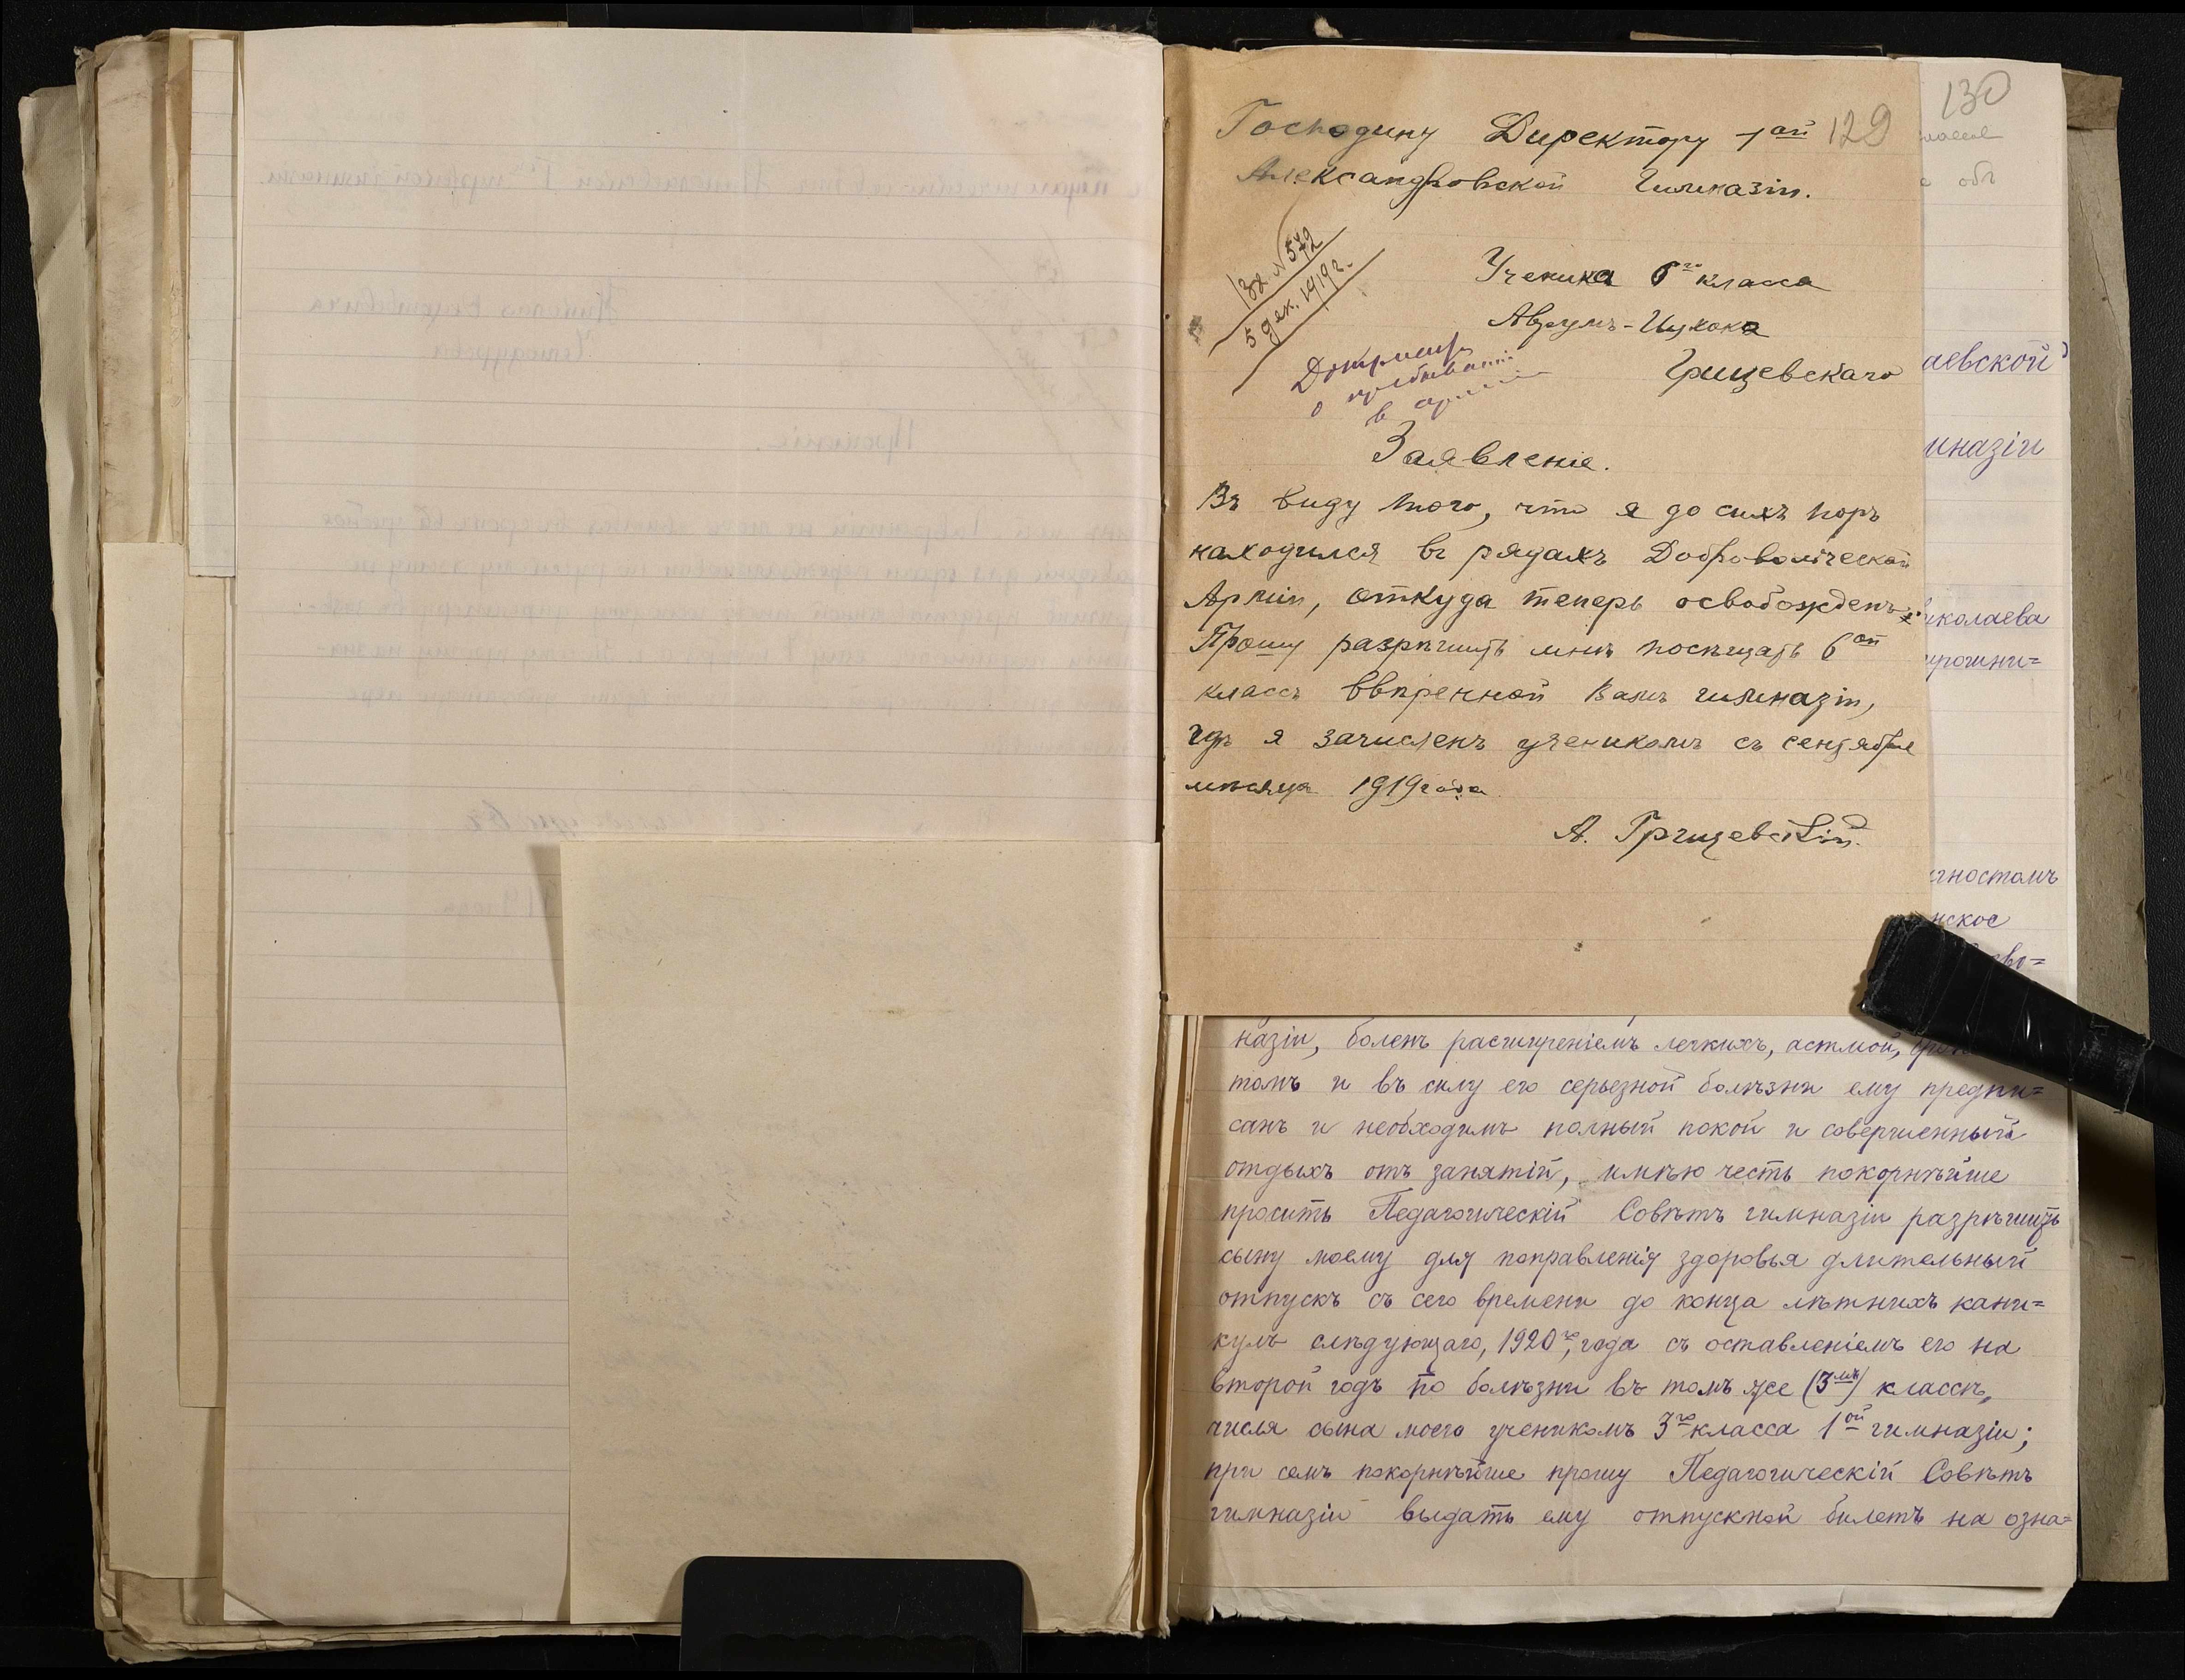 Господину Директору 1ой 129
Александровской Гимназіи.
Вх. N 572
5 дек. 1919 г.
Ученика 6го класса
Аврумъ-Ицхока
Грищевскаго
Документъ
о пребываніи
в арміи
Заявленіе.
Въ виду того, что я до сихъ поръ
находился въ рядахъ Добровольческой
Арміи, откуда теперь освобожденъ.
Прошу разрѣшить мнѣ посѣщать 6ой
классъ ввѣренной Вамъ гимназіи,
гдѣ я зачисленъ ученикомъ съ сентября
мѣсяца 1919 года
А. Грищевскій.
130
объ
аевской
иназіи
иколаева
рогини=
гностомъ
нское
ово=
назіи, боленъ расширеніемъ легкихъ, астмой,
томъ и въ силу его серьезной болѣзни ему предпи=
санъ и необходимъ полный покой и совершенный
отдыхъ отъ занятій, имѣю честь покорнѣйше
просить Педагогическій Совѣтъ гимназіи разрѣшить
сыну моему для поправленія здоровья длительный
отпускъ съ сего времени до конца лѣтнихъ кани=
кулъ слѣдующаго, 1920го, года съ оставленіемъ его на
второй годъ по болѣзни въ томъ же (3мъ) классѣ,
числя сына моего ученикомъ 3го класса 1ой гимназіи;
при семъ покорнѣйше прошу Педагогическій Совѣтъ
гимназіи выдать ему отпускной билетъ на озна=